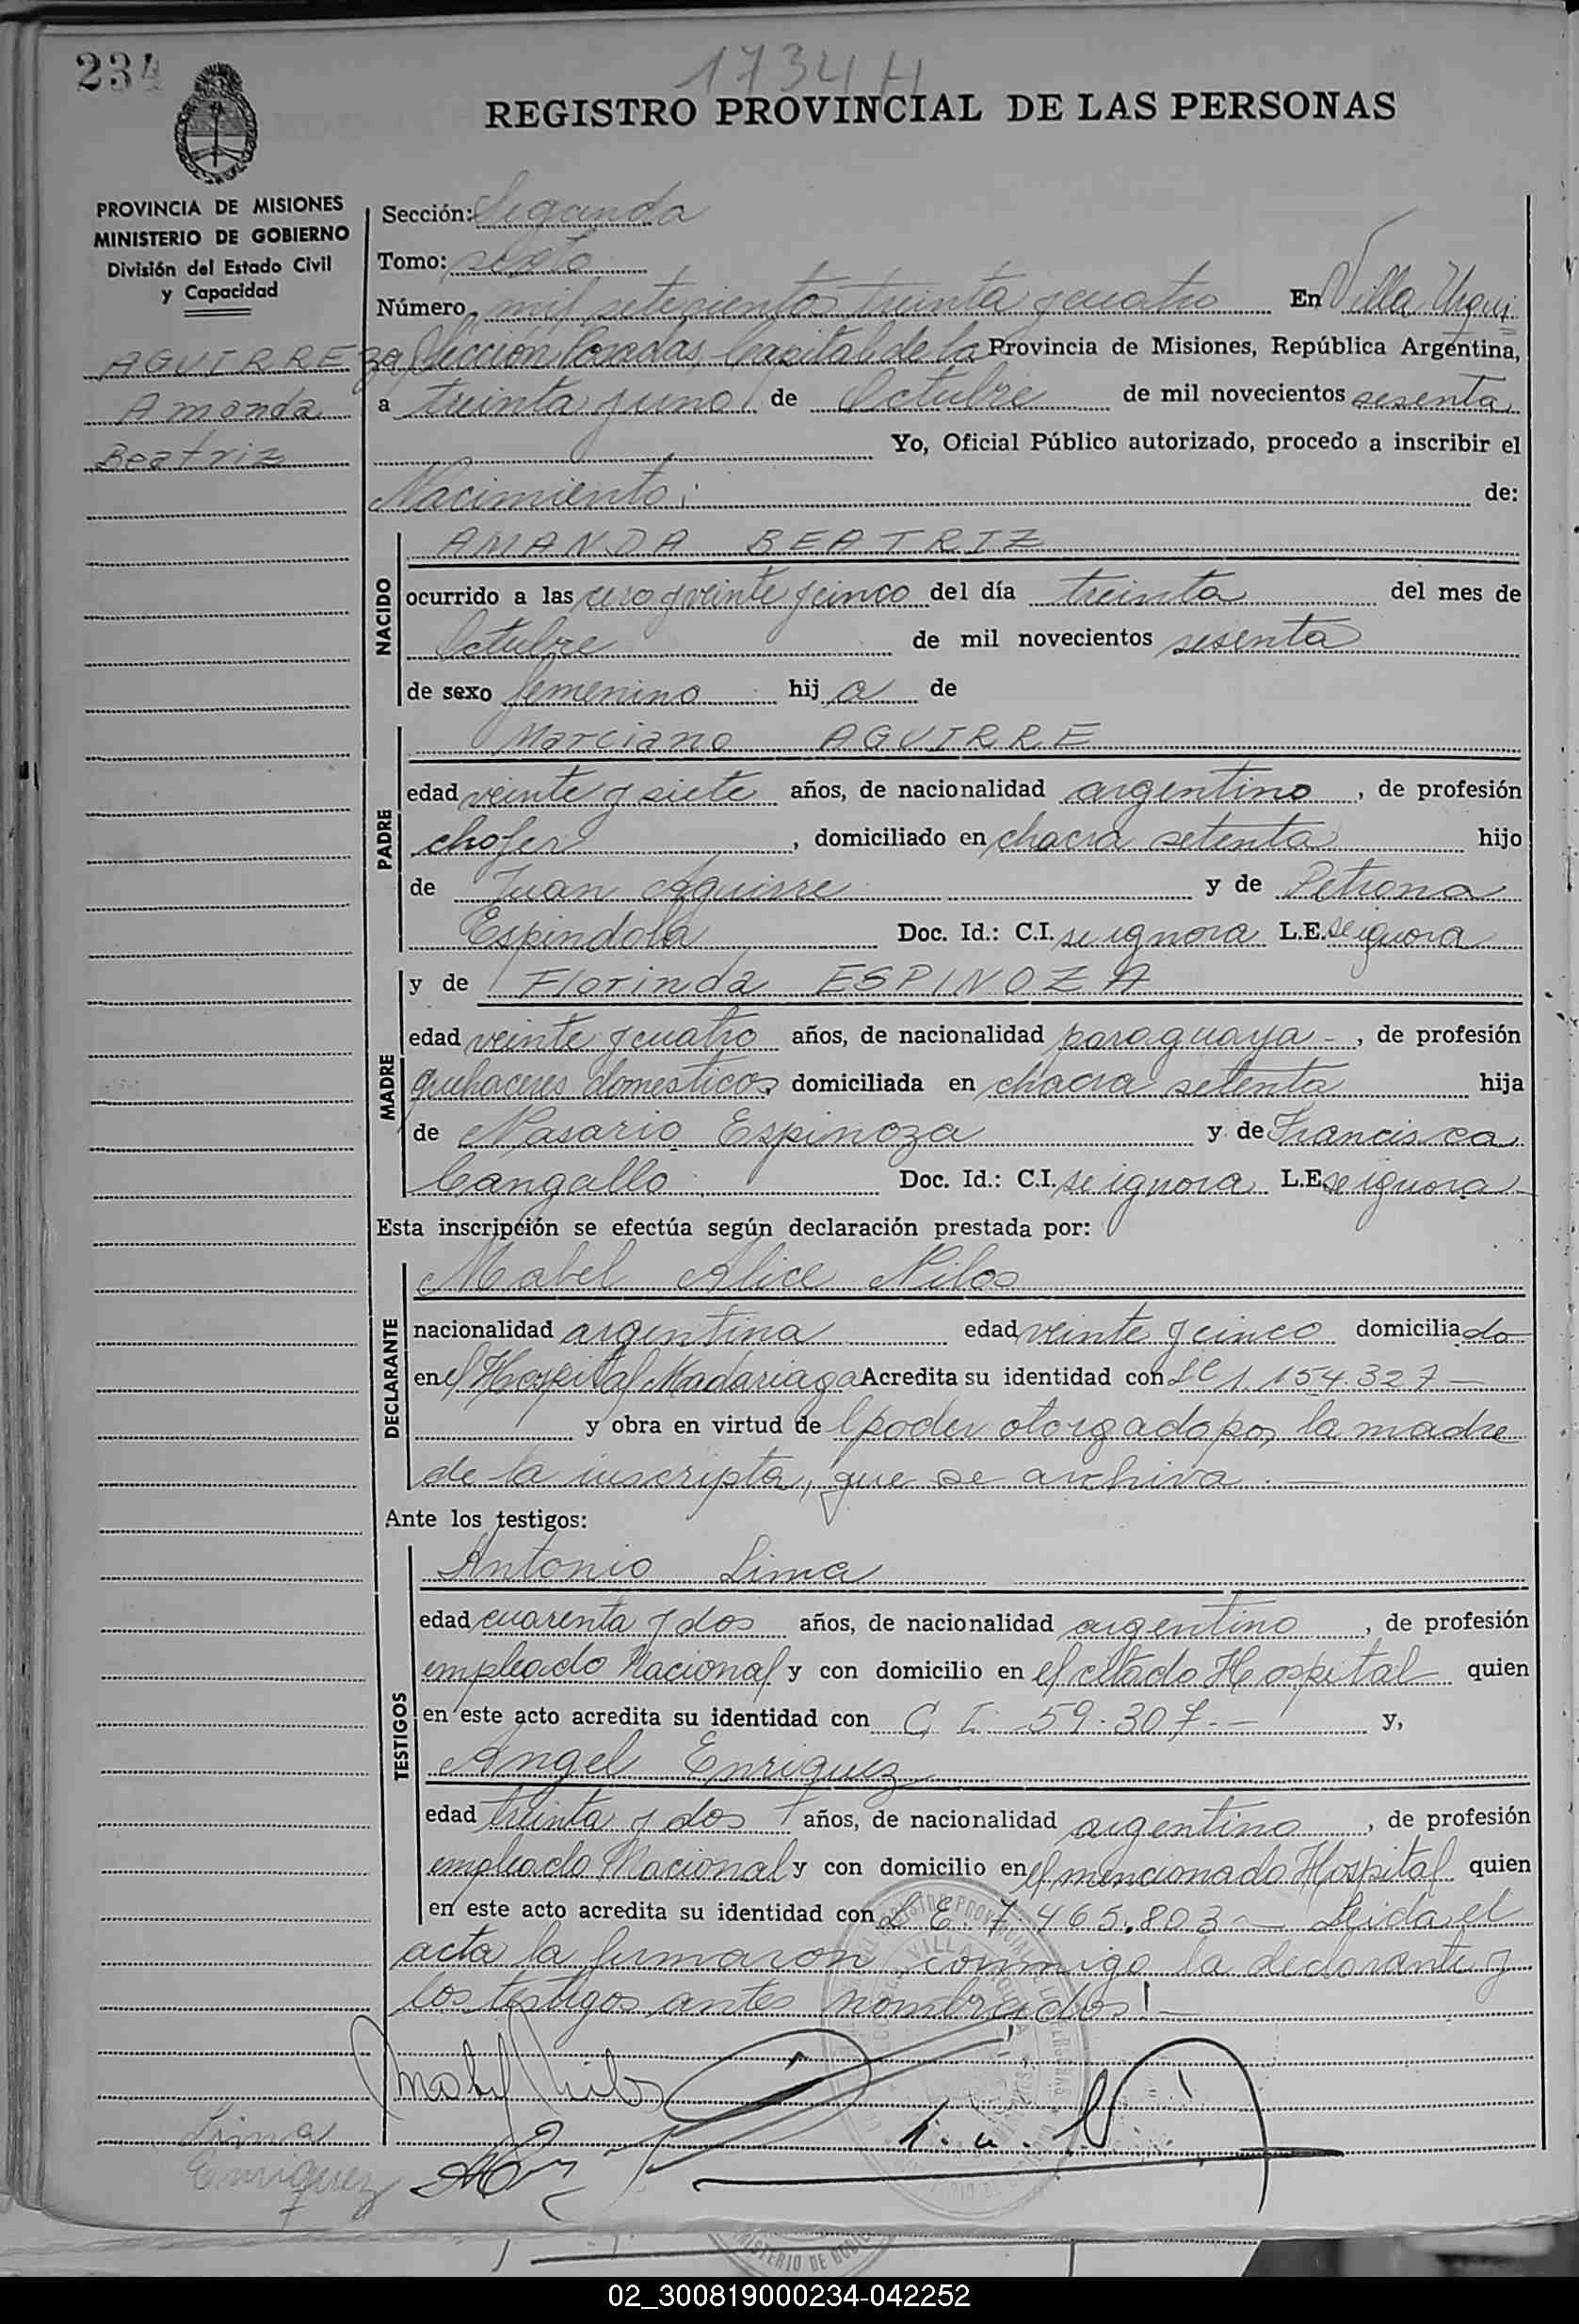 234
1734 H
REGISTRO PROVINCIAL DE LAS PERSONAS
PROVINCIA DE MISIONES
MINISTERIO DE GOBIERNO
División del Estado Civil
y Capacidad
AGUIRRE
Amanda
Beatriz
Sección: Segunda
Tomo: sexto
Número, mil setecientos treinta y cuatro En Villa Urqui
za Sección Posadas, Capital de la Provincia de Misiones, República Argentina,
a treinta y uno de Octubre de mil novecientos sesenta
Yo, Oficial Público autorizado, procedo a inscribir el
Nacimiento: de:
NACIDO
AMANDA BEATRIZ
ocurrido a las cero y veinte y cinco del día treinta del mes de
Octubre de mil novecientos sesenta
de sexo femenino hija de
PADRE
Marciano AGUIRRE
edad veinte y siete años, de nacionalidad argentino, de profesión
chofer, domiciliado en chacra setenta hijo
de Juan Aguirre y de Petrona
Espindola Doc. Id.: C.I. se ignora L.E. se ignora
MADRE
y de Florinda ESPINOZA
edad veinte y cuatro años, de nacionalidad paraguaya -, de profesión
quehaceres domesticos, domiciliada en chacra setenta hija
de Nasario Espinoza y de Francisca
Cangallo Doc. Id.: C.I. se ignora L.E. se ignora
Esta inscripción se efectúa según declaración prestada por:
DECLARANTE
Mabel Alice Nilos
nacionalidad argentina edad veinte y cinco domiciliada
en el Hospital Madariaga Acredita su identidad con LC 1.154.327 -
y obra en virtud de poder otorgado por la madre
de la inscripta, que se archiva. -
Ante los testigos:
TESTIGOS
Antonio Lima
edad cuarenta y dos años, de nacionalidad argentino, de profesión
empleado Nacional y con domicilio en el citado Hospital quien
en este acto acredita su identidad con C I 59.307.- y,
Angel Enriquez
edad treinta y dos años, de nacionalidad argentino, de profesión
empleado Nacional y con domicilio en el mencionado Hospital quien
en este acto acredita su identidad con L E. 7.465.803 - Leida el
acta la firmaron conmigo la declarante y
los testigos antes nombrados! -
Lima
Enriquez
02_300819000234-042252